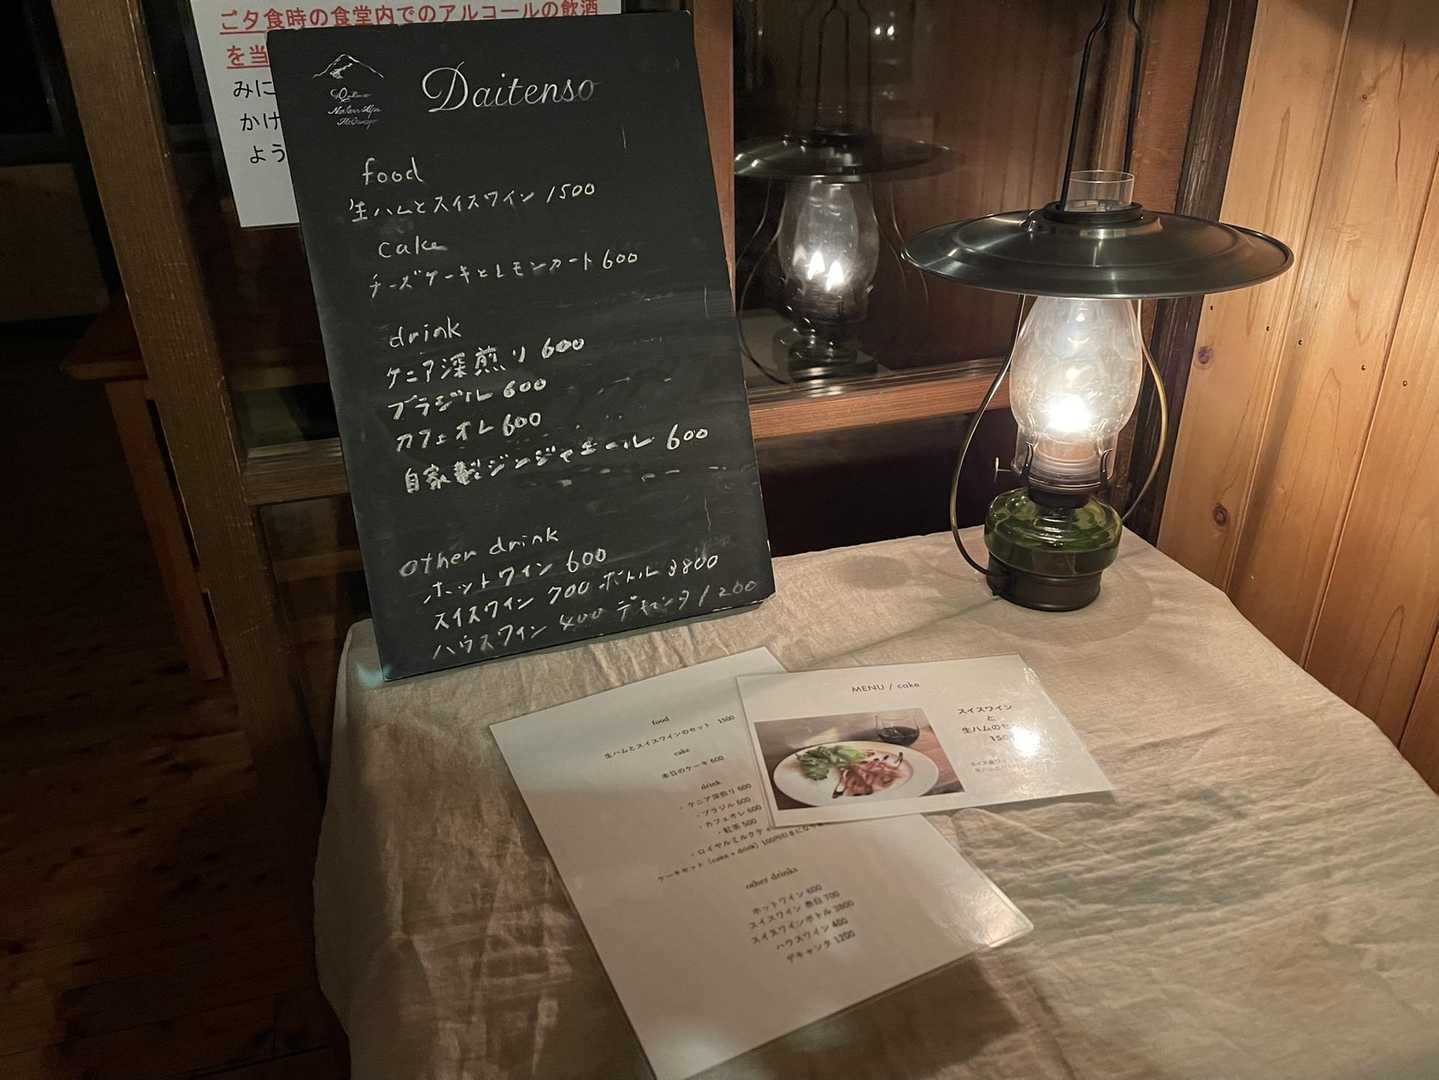 ご夕食時の食堂内でのアルコールの飲酒
を当
みに
かけ
よう
Daitenso
food
生ハムとスイスワイン 1500
cake
チーズケーキとレモンカート 600
drink
ケニア深煎り 600
ブラジル 600
カフェオレ 600
自家製ジンジャエール 600
other drink
ホットワイン 600
スイスワイン 700 ボトル 3800
ハウスワイン 400 デキャンタ 1200
food
生ハムとスイスワインのセット 1500
cake
本日のケーキ 600
drink
・ケニア深煎り 600
・ブラジル 600
・カフェオレ 600
・紅茶 500
・ロイヤルミルクティ
ケーキセット (cake + drink) 100円引きに
other drinks
ホットワイン 600
スイスワイン 赤白 700
スイスワインボトル 3800
ハウスワイン 400
デキャンタ 1200
MENU / cake
スイスワイン
と
生ハムのセ
150